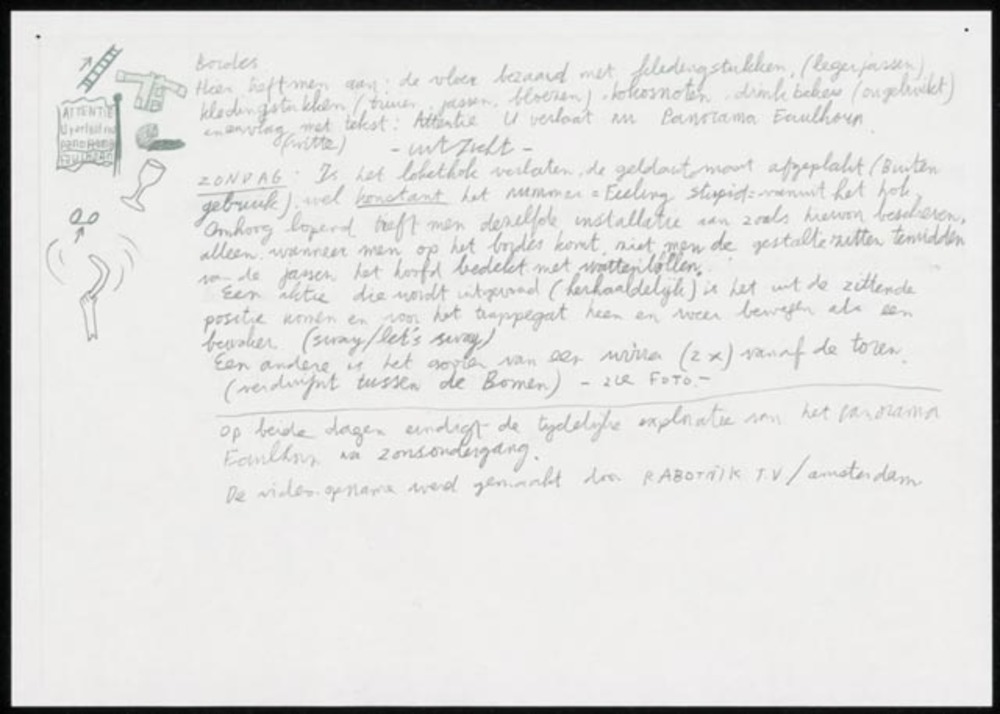 Bordes
Hier treft men aan: de vloer bezaaid met kledingstukken, (legerjassen)
kledingstukken (truien, jassen, bloezen), kokosnoten, drink bekers (ongebruikt)
en een vlag met tekst: Attentie U verlaat nu Panorama Faulhorn.
(witte) - uitzicht -
ATTENTIE
U verlaat nu
panorama
faulhorn
ZONDAG: Is het lokethok verlaten, de geldautomaat afgeplakt (Buiten
gebruik), wel konstant het nummer = Feeling stupid = vanuit het hok.
Omhoog lopend treft men dezelfde installatie aan zoals hiervoor beschreven,
alleen wanneer men op het bordes komt, ziet men de gestalte zitten temidden
van de jassen het hoofd bedekt met wattenbollen.
Een aktie die wordt uitgevoerd (herhaaldelijk) is het uit de zittende
positie komen en voor het trappegat heen en weer bewegen als een
bewaker. (sway/let's sway)
Een andere is het gooien van een (2x) vanaf de toren.
(verdwijnt tussen de Bomen) - zie FOTO. -
Op beide dagen eindigt de tijdelijke exploratie van het panorama
Faulhorn na zonsondergang.
De video-opname werd gemaakt door RABOTNIK T.V / amsterdam